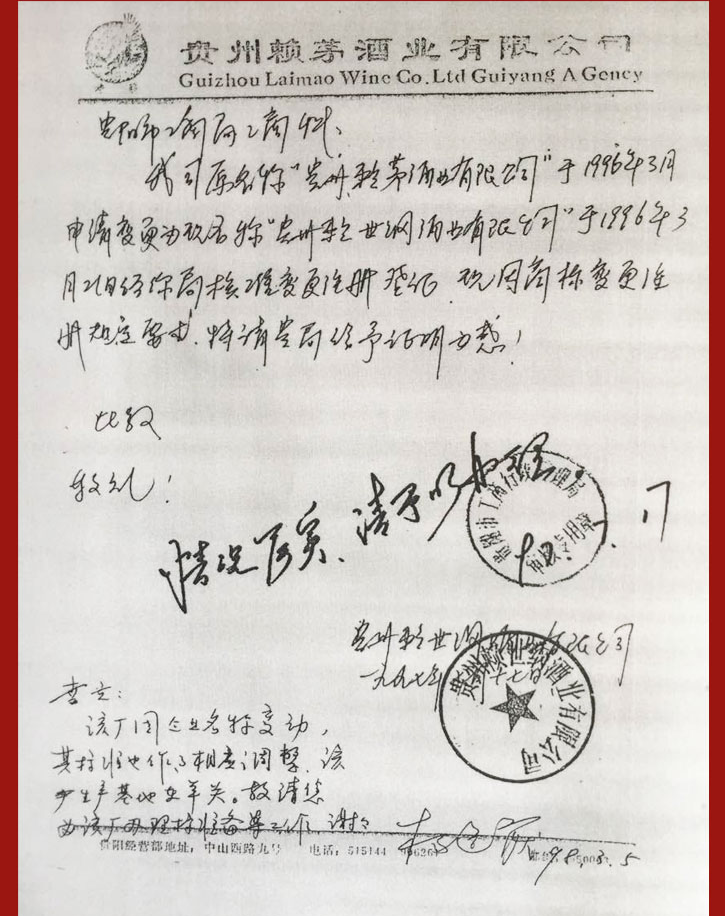 贵州赖茅酒业有限公司
Guizhou Laimao Wine Co.Ltd Guiyang A Gency
贵阳市工商局工商科:
我司原名称"贵州赖茅酒业有限公司"于1996年3月
申请变更为现名称"贵州赖世纲酒业有限公司"于1996年3
月21日经你局核准变更注册登记,现因商标变更注
册规定要求,特请贵局给予证明为感!
此致
敬礼!
情况属实,请予以办理。
贵阳市工商行政管理局
贵州赖世纲酒业有限公司
一九九七年 十七日
贵州赖世纲酒业有限公司
该厂因企业名称变动,
其标准也作了相应调整,该
厂生产基地在 。敬请您
为该厂办理标准备案工作,谢谢
贵阳经营部地址:中山西路九号 电话:515144
98.03.5